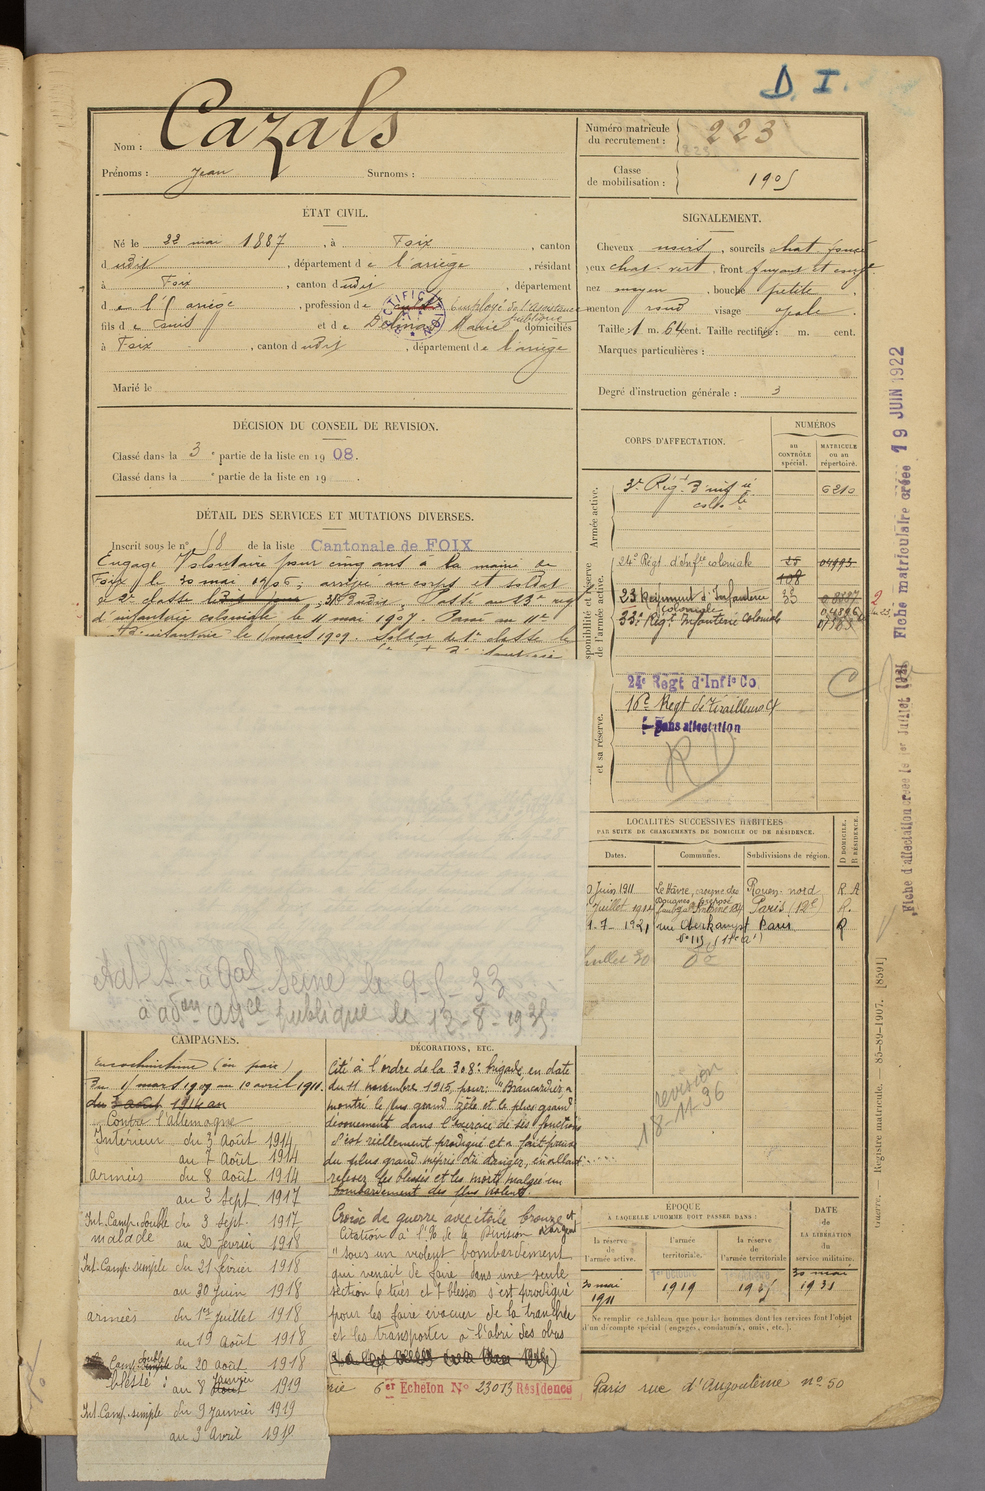 D. I.
Nom : Cazals
Prénoms : Jean Surnoms :
Numéro matricule du recrutement : 223
Classe de mobilisation : 1905
ÉTAT CIVIL.
Né le 22 mai 1887, à Foix, canton
dudit, département de l'ariège, résidant
à Foix, canton dudit, département
de l'Ariège, profession de Employé de l'assistance publique
fils de Louis et de Marie domiciliés
à Foix, canton dudit, département de l'ariège
Marié le
SIGNALEMENT.
Cheveux noirs, sourcils chat. foncé
yeux chat. vert, front fuyant et
nez moyen, bouche petite
menton rond visage ovale.
Taille : 1 m. 64 cent. Taille rectifiée : m. cent.
Marques particulières :
Degré d'instruction générale : 3
DÉCISION DU CONSEIL DE REVISION.
Classé dans la 3e partie de la liste en 1908.
Classé dans la e partie de la liste en 19 .
DÉTAIL DES SERVICES ET MUTATIONS DIVERSES.
Inscrit sous le n° 58 de la liste Cantonale de FOIX
Engagé Volontaire pour cinq ans à la mairie de
Foix le 30 mai 1906; arrivé au corps et soldat
de 2e classe ledit jour, Passé au 23e rég
d'infanterie coloniale le 11 mai 1907. Passé au 11e
d'infanterie le 11 mars 1909. Soldat de 1e classe le
CORPS D'AFFECTATION.
NUMÉROS
au CONTRÔLE spécial.
MATRICULE ou au répertoire.
Armée active.
3e Rég.t d'inf.ie colo.le 6210
Disponibilité et réserve de l'armée active.
24e Régt d'Infie coloniale 25 04993
108
23 Régiment d'Infanterie coloniale 35
33e Régt Infanterie Coloniale
et sa réserve.
24e Régt d'Infie Co
16e Régt de Tirailleurs
Sans affectation
R D
LOCALITÉS SUCCESSIVES HABITÉES
PAR SUITE DE CHANGEMENTS DE DOMICILE OU DE RÉSIDENCE.
Dates. Communes. Subdivisions de région. D DOMICILE. R RÉSIDENCE.
Juin 1911 Le Havre, caserne des Douanes, préposé Rouen-nord R. A
Juillet 1914 Paris (12e) R.
1-7-1921 rue Oberkampf Paris R
n° 113 (11e a)
Juillet 30 do
revision
18-11-36
Adt S. à Gal Seine le 9-5-33
à adon assce publique le 12-8-1935
CAMPAGNES.
En cochinchine (en paix)
Du 11 mars 1909 au 10 avril 1911.
du 3 août 1914 au
Contre l'allemagne
Intérieur du 3 Août 1914
au 7 Août 1914
armées du 8 Août 1914
au 2 Sept 1917
Int. Camp. double du 3 Sept. 1917
malade au 20 février 1918
Int. Camp. simple du 21 février 1918
au 30 juin 1918
armées du 1er Juillet 1918
au 19 Août 1918
Camp. double du 20 août 1918
blessé au 8 Janvier 1919
Int. Camp. simple du 9 Janvier 1919
au 3 Avril 1919
DÉCORATIONS, ETC.
Cité à l'ordre de la 308e brigade, en date
du 11 novembre 1915, pour : "Brancardier a
montré le plus grand zèle et le plus grand
dévouement dans l'exercice de ses fonctions
S'est réellement prodigué et a fait preuve
du plus grand mépris du danger, en allant
relever les blessés et les morts malgré un
bombardement des plus violents.
Croix de guerre avec étoile bronze et d'argent
Citation à l'O de la Division
" sous un violent bombardement
qui venait de faire dans une seule
section 9 tués et 7 blessés s'est prodigué
pour les faire évacuer de la tranchée
et les transporter à l'abri des obus
6er Echelon No 23013 Résidence Paris rue d'Angoulême no 50
ÉPOQUE
À LAQUELLE L'HOMME DOIT PASSER DANS :
la réserve de l'armée active. l'armée territoriale. la réserve de l'armée territoriale
DATE de LA LIBÉRATION du service militaire.
30 mai 1911
1er octobre 1919
30 mai 1931
Ne remplir ce tableau que pour les hommes dont les services font l'objet
d'un décompte spécial (engagés, condamnés, omis, etc.).
Fiche d'affectation créée le 1er Juillet 1921
Fiche matriculaire créée 19 JUIN 1922
Guerre. — Registre matricule. — 85-89-1907. [8591]